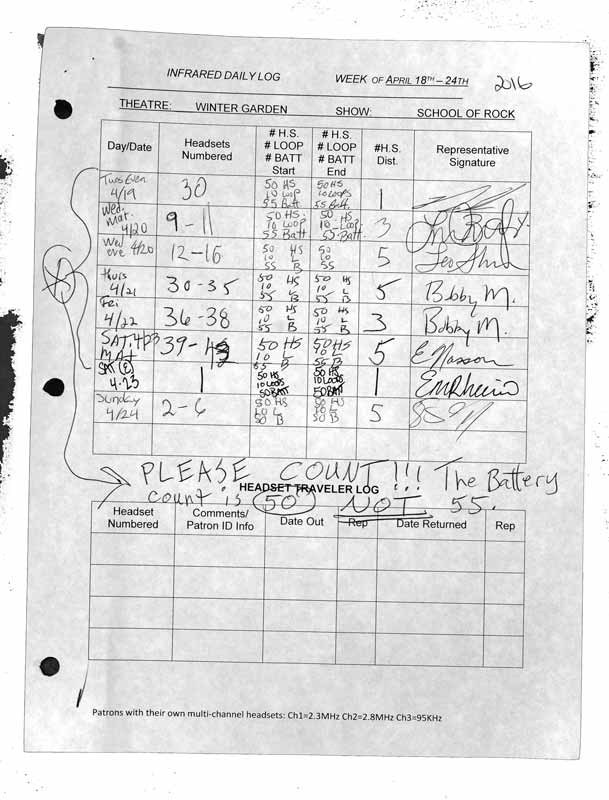 2016
INFRARED DAILY LOG WEEK OF APRIL 18TH – 24TH
THEATRE: WINTER GARDEN SHOW: SCHOOL OF ROCK
Day/Date Headsets Numbered # H.S. # LOOP # BATT Start # H.S. # LOOP # BATT End #H.S. Dist. Representative Signature
Tues Even 4/19 30 50 HS 10 Loop 55 Batt. 50 HS 10 Loops 55 Batt. 1
Wed. Mat. 4/20 9 - 11 50 HS. 10 Loop 55 Batt 50 - HS 10 - Loop 55 - Batt. 3
Wed eve 4/20 12 - 16 50 HS 10 L 55 B 50 10 55 5
Thurs 4/21 30 - 35 50 HS 10 L 55 B 50 HS 10 L 55 B 5 Bobby M.
Fri 4/22 36 - 38 50 HS 10 L 55 B 50 HS 10 L 55 B 3 Bobby M.
SAT. 4/23 MAT 39 - 50 HS 10 L 55 B 50 HS 10 L 55 B 5
SAT (E) 4.23 1 50 HS 10 LOOPS 50 BATT 50 HS 10 LOOPS 50 BATT 1
Sunday 4/24 2 - 6 50 HS 10 L 50 B 50 HS 10 L 50 B 5
PLEASE COUNT!!! The Battery
HEADSET TRAVELER LOG
count is 50 NOT 55.
Headset Numbered Comments/ Patron ID Info Date Out Rep Date Returned Rep
Patrons with their own multi-channel headsets: Ch1=2.3MHz Ch2=2.8MHz Ch3=95KHz